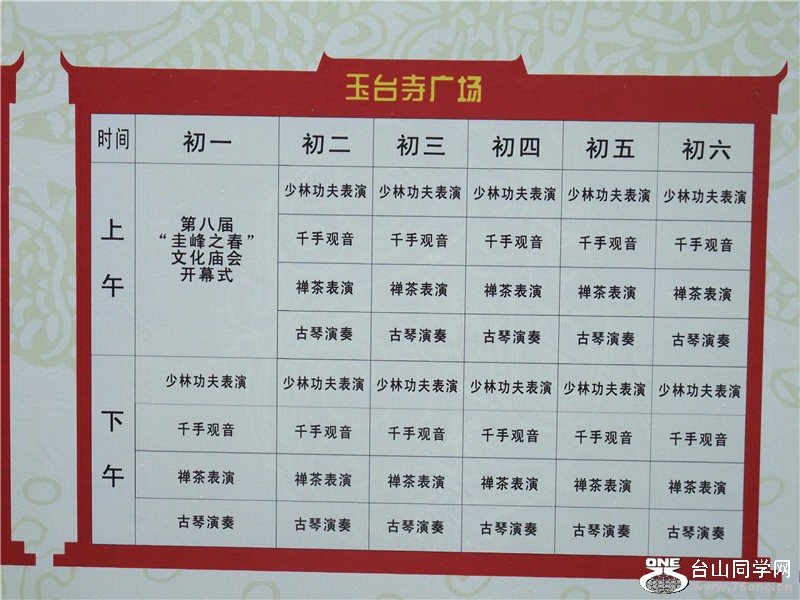 玉台寺广场
时间 初一 初二 初三 初四 初五 初六
上午
第八届
“圭峰之春”
文化庙会
开幕式
少林功夫表演 少林功夫表演 少林功夫表演 少林功夫表演 少林功夫表演
千手观音 千手观音 千手观音 千手观音 千手观音
禅茶表演 禅茶表演 禅茶表演 禅茶表演 禅茶表演
古琴演奏 古琴演奏 古琴演奏 古琴演奏 古琴演奏
下午
少林功夫表演 少林功夫表演 少林功夫表演 少林功夫表演 少林功夫表演 少林功夫表演
千手观音 千手观音 千手观音 千手观音 千手观音 千手观音
禅茶表演 禅茶表演 禅茶表演 禅茶表演 禅茶表演 禅茶表演
古琴演奏 古琴演奏 古琴演奏 古琴演奏 古琴演奏 古琴演奏
ONE 台山同学网
www.75one.cn